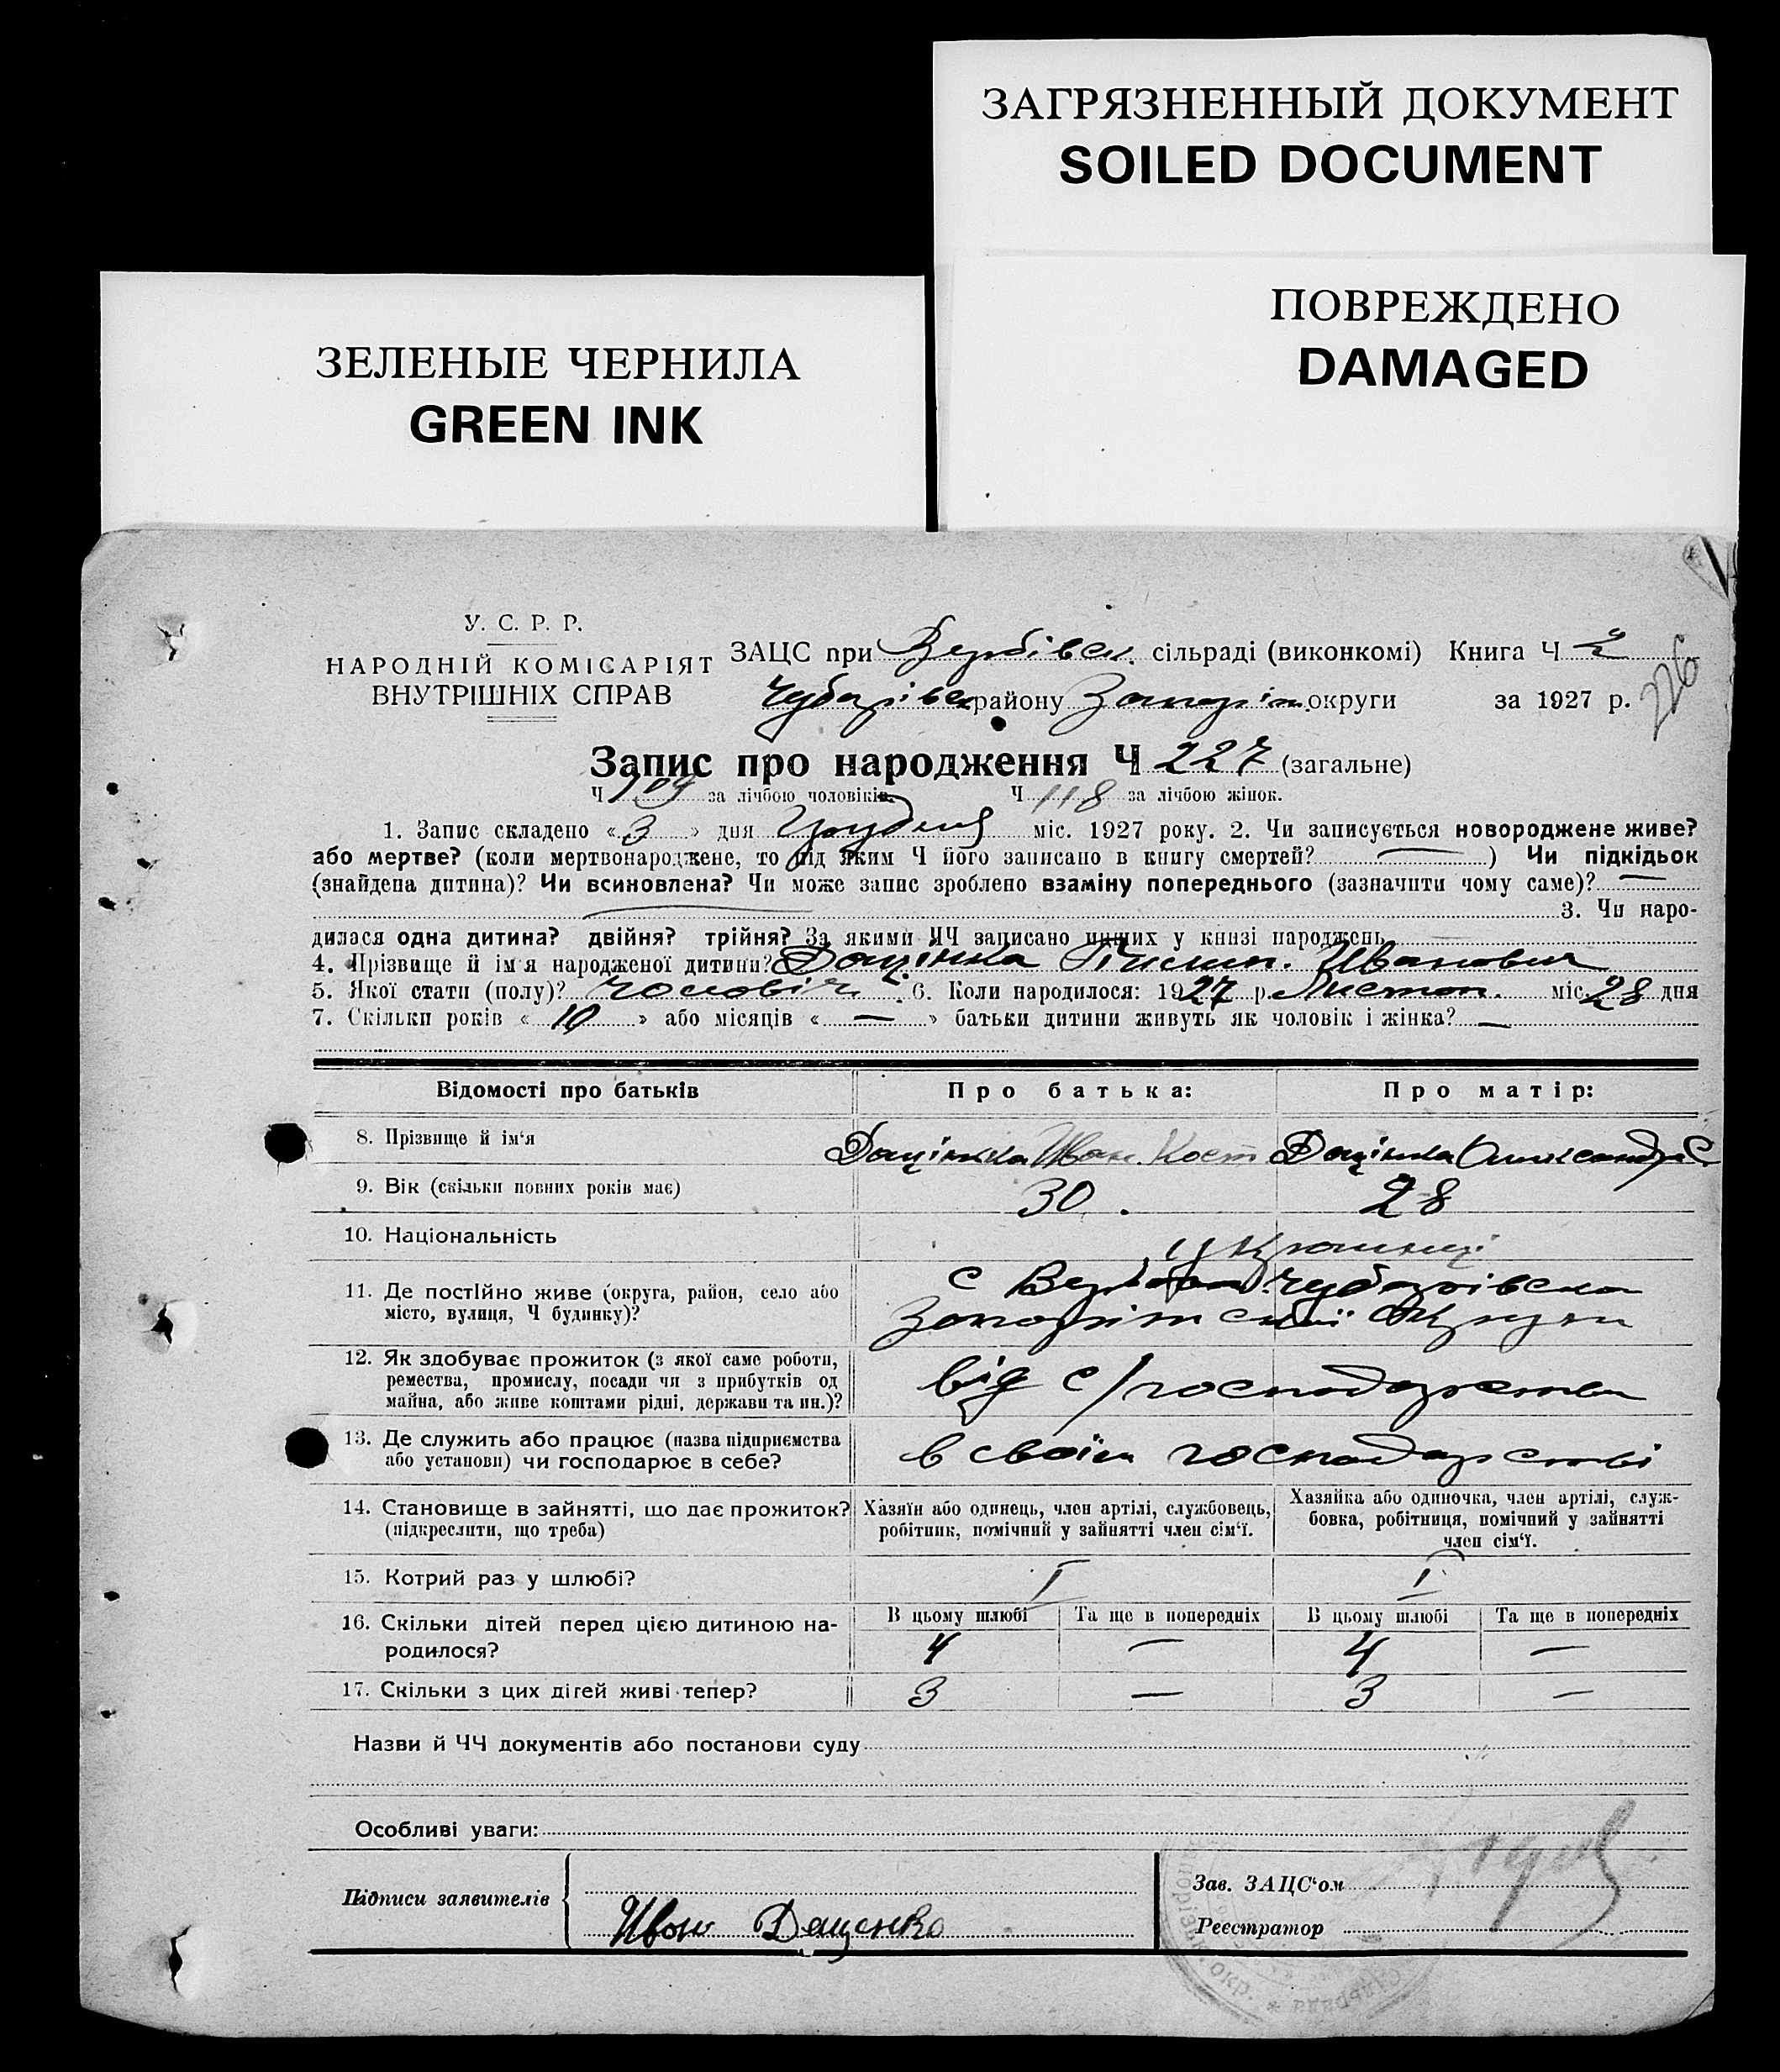 ЗАГРЯЗНЕННЫЙ ДОКУМЕНТ
SOILED DOCUMENT
ПОВРЕЖДЕНО
DAMAGED
ЗЕЛЕНЫЕ ЧЕРНИЛА
GREEN INK
У. С. Р. Р.
НАРОДНІЙ КОМІСАРІЯТ
ВНУТРІШНІХ СПРАВ
ЗАЦС при Вербівськ. сільраді (виконкомі) Книга Ч 2
Чубарівськ району Запоріж. округи за 1927 р.
226
Запис про народження Ч 227 (загальне)
Ч 109 за лічбою чоловіків. Ч 118 за лічбою жінок.
1. Запис складено «3» дня Грудень міс. 1927 року. 2. Чи записується новороджене живе?
або мертве? (коли мертвонароджене, то під яким Ч його записано в книгу смертей? —) Чи підкідьок
(знайдена дитина)? Чи всиновлена? Чи може запис зроблено взаміну попереднього (зазначити чому саме)? —
— 3. Чи наро-
дилася одна дитина? двійня? трійня? За якими ЧЧ записано инших у книзі народжень
4. Прізвище й ім'я народженої дитини? Доцінка Іванович
5. Якої стати (полу)? чоловіч. 6. Коли народилося: 1927 р. Листоп. міс. 28 дня
7. Скільки років «10» або місяців «—» батьки дитини живуть як чоловік і жінка? —
Відомості про батьків Про батька: Про матір:
8. Прізвище й ім'я Доцінка Иван Кост Доцінка Олександра С.
9. Вік (скільки повних років має) 30. 28
10. Національність українці
11. Де постійно живе (округа, район, село або с Вербова Чубарівська
місто, вулиця, Ч будинку)? Запоріжської Округи
12. Як здобуває прожиток (з якої саме роботи,
ремества, промислу, посади чи з прибутків од від с/господарства
майна, або живе коштами рідні, держави та ин.)?
13. Де служить або працює (назва підприємства в своїм господарстві
або установи) чи господарює в себе?
14. Становище в зайнятті, що дає прожиток? Хазяїн або одинець, член артілі, службовець, Хазяйка або одиночка, член артілі, служ-
(підкреслити, що треба) робітник, помічний у зайнятті член сім'ї. бовка, робітниця, помічний у зайнятті
член сім'ї.
15. Котрий раз у шлюбі? I I
16. Скільки дітей перед цією дитиною на- В цьому шлюбі Та ще в попередніх В цьому шлюбі Та ще в попередніх
родилося? 4 — 4 —
17. Скільки з цих дітей живі тепер? 3 — 3 —
Назви й ЧЧ документів або постанови суду
Особливі уваги:
Підписи заявителів Иван Доценко
Зав. ЗАЦС'ом
Реєстратор